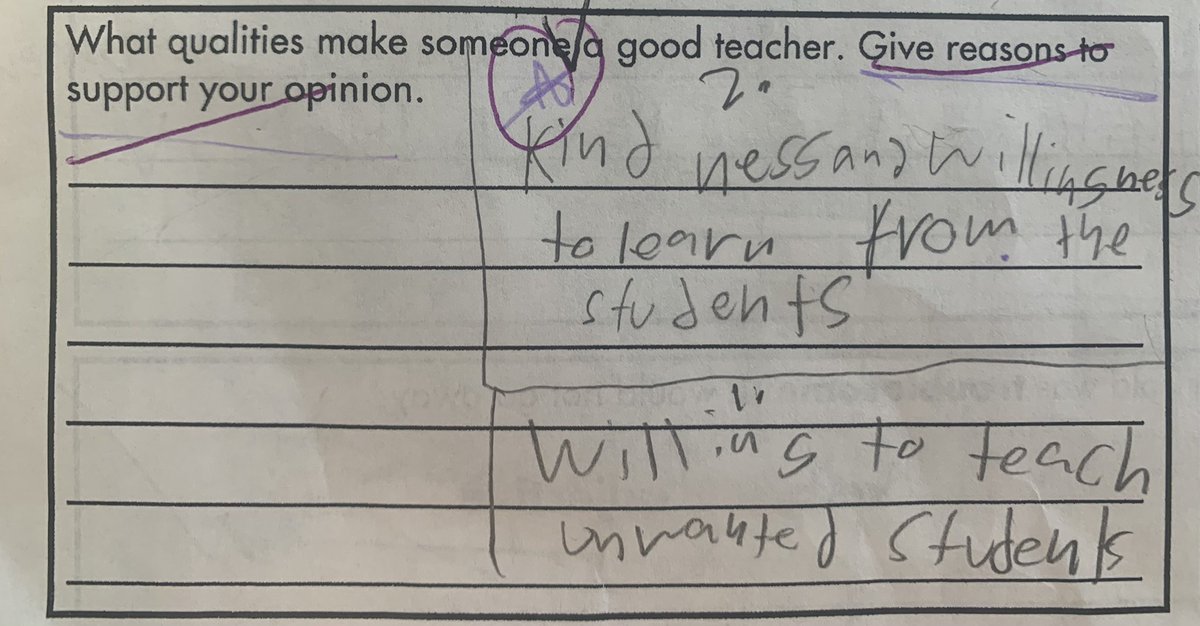 What qualities make someone a good teacher. Give reasons to
support your opinion.
2.
Kind nessand willingness
to learn from the
students
willing to teach
unwanted students